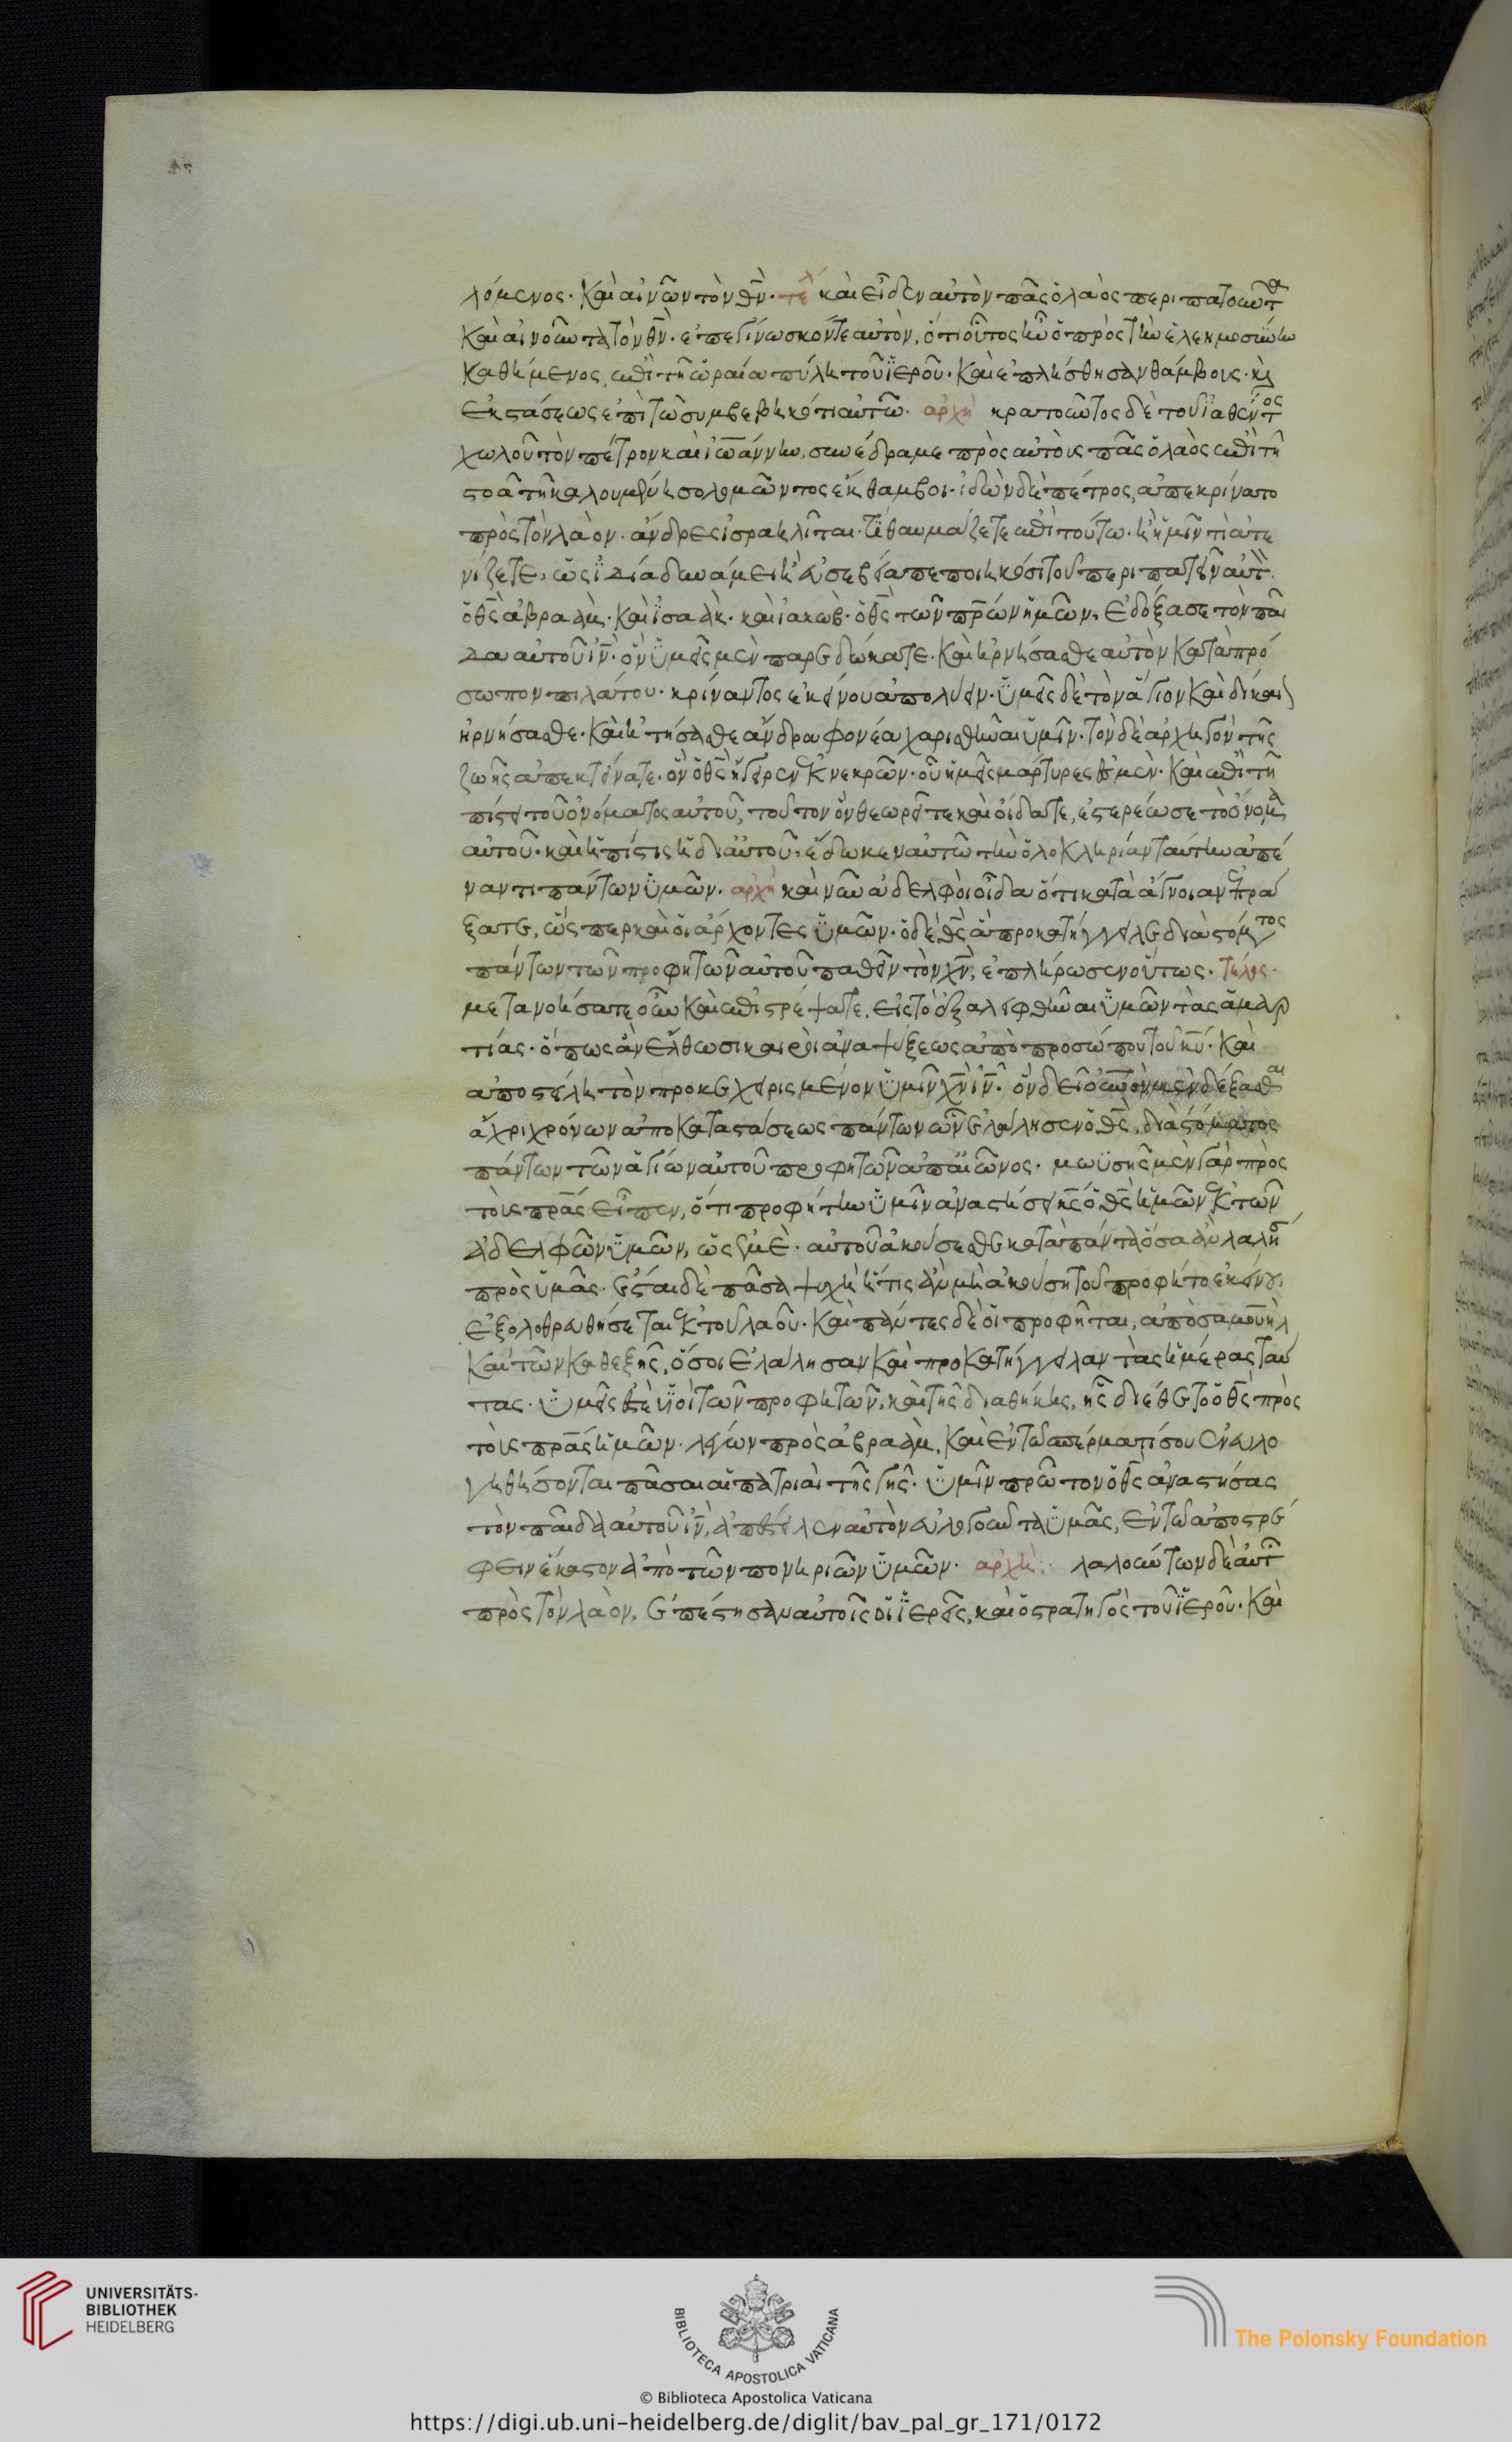 λόμενος· καὶ αἰνῶν τὸν θν̄· τε^λ καὶ εἶδεν αὐτὸν πᾶς ὁ λαὸς περιπατοῦντα
καὶ αἰνοῦντα τὸν θν̄· ἐπεγίνωσκόν τε αὐτὸν, ὅτι οὗτος ἦν ὁ πρὸς τὴν ἐλεημοσύνην
καθήμενος ἐπὶ τῆ ὡραία πύλη τοῦ ἱεροῦ· καὶ ἐπλήσθησαν θάμβους· κὶ
ἐκστάσεως ἐπὶ τῶ συμβεβηκότι αὐτῶ· ἀρχὴ κρατοῦντος δὲ τοῦ ἰαθέντος
χωλοῦ τὸν πέτρον καὶ ἰωάννην, συνέδραμε πρὸς αὐτοὺς πᾶς ὁ λαὸς ἐπὶ τῆ
στοᾶ τῆ καλουμένη σολομῶντος ἔκθαμβοι· ἰδὼν δὲ πέτρος, ἀπεκρίνατο
πρὸς τὸν λαὸν· ἄνδρες ἰσραηλῖται· τί θαυμάζετε ἐπὶ τούτω· ἢ ἡμῖν τί ἀτε
νίζετε, ὡς ἰδία δυνάμει ἢ εὐσεβεία πεποιηκόσι τοῦ περιπατεῖν αὐτ
ὁ θς̄ ἀβραὰμ· καὶ ἰσαὰκ· καὶ ἰακώβ· ὁ θς̄ τῶν πρ̄ων ἡμῶν, ἐδόξασε τὸν παῖ
δα αὐτοῦ ἰν̄· ὃν ὑμεῖς μὲν παρεδώκατε· καὶ ἠρνήσασθε αὐτὸν κατὰ πρό
σωπον πιλάτου· κρίναντος ἐκείνου ἀπολύειν· ὑμεῖς δὲ τὸν ἅγιον καὶ δίκαι
ἠρνήσασθε· καὶ ἠτήσασθε ἄνδρα φονέα χαρισθῆναι ὑμῖν· τὸν δὲ ἀρχηγὸν τῆς
ζωῆς ἀπεκτείνατε· ὃν ὁ θς̄ ἤγειρεν ἐκ νεκρῶν· οὗ ἡμεῖς μάρτυρες ἐσμὲν· καὶ ἐπὶ τῆ
πίστει τοῦ ὀνόματος αὐτοῦ, τοῦτον ὃν θεωρεῖτε καὶ οἴδατε, ἐστερέωσε τὸ ὄνομα
αὐτοῦ· καὶ ἡ πίστις ἡ δι' αὐτοῦ, ἔδωκεν αὐτῶ τὴν ὁλοκληρίαν ταύτην ἀπέ
ναντι πάντων ὑμῶν· ἀρχὴ καὶ νῦν ἀδελφοὶ οἶδα ὅτι κατὰ ἄγνοιαν ἐπρά
ξατε, ὥσπερ καὶ οἱ ἄρχοντες ὑμῶν· ὁ δὲ θς̄ ἃ προκατήγγειλε διὰ στόματος
πάντων τῶν προφητῶν αὐτοῦ παθεῖν τὸν χν̄, ἐπλήρωσεν οὕτως· τέλος·
μετανοήσατε οὖν καὶ ἐπιστρέψατε, εἰς τὸ ἐξαλειφθῆναι ὑμῶν τὰς ἁμαρ
τίας· ὅπως ἂν ἔλθωσι καιροὶ ἀναψύξεως ἀπὸ προσώπου τοῦ κῡ· καὶ
ἀποστείλη τὸν προκεχειρισμένον ὑμῖν χν̄ ἰν̄· ὃν δεῖ οὐνὸν μὲν δέξασθαι
ἄχρι χρόνων ἀποκαταστάσεως πάντων ὧν ἐλάλησεν ὁ θς̄, διὰ στόματος
πάντων τῶν ἁγίων αὐτοῦ προφητῶν ἀπ' αἰῶνος· μωϋσῆς μὲν γὰρ πρὸς
τοὺς πρ̄ας εἶπεν, ὅτι προφήτην ὑμῖν ἀναστήσει κς̄ ὁ θς̄ ἡμῶν ἐκ τῶν
ἀδελφῶν ὑμῶν, ὡς ἐμὲ· αὐτοῦ ἀκούσεσθε κατὰ πάντα ὅσα ἂν λαλήσ
πρὸς ὑμᾶς· ἔσται δὲ πᾶσα ψυχὴ ἥτις ἂν μὴ ἀκούση τοῦ προφήτου ἐκείνου,
ἐξολοθρευθήσεται ἐκ τοῦ λαοῦ· καὶ πάντες δὲ οἱ προφῆται, ἀπὸ σαμουὴλ
καὶ τῶν καθεξῆς, ὅσοι ἐλάλησαν καὶ προκατήγγειλαν τὰς ἡμέρας ταύ
τας· ὑμεῖς ἐστὲ υἱοὶ τῶν προφητῶν, καὶ τῆς διαθήκης, ἧς διέθετο ὁ θς̄ πρὸς
τοὺς πρ̄ας ἡμῶν· λέγων πρὸς ἀβραὰμ, καὶ ἐν τῶ σπέρματί σου ἐνευλο
γηθήσονται πᾶσαι αἱ πατριαὶ τῆς γῆς· ὑμῖν πρῶτον ὁ θς̄ ἀναστήσας
τὸν παῖδα αὐτοῦ ἰν̄, ἀπέστειλεν αὐτὸν εὐλογοῦντα ὑμᾶς, ἐν τῶ ἀποστρέ
φειν ἕκαστον ἀπὸ τῶν πονηριῶν ὑμῶν· ἀρχὴ: λαλούντων δὲ αὐτ
πρὸς τὸν λαὸν, ἐπέστησαν αὐτοῖς οἱ ἱερεῖς, καὶ ὁ στρατηγὸς τοῦ ἱεροῦ· καὶ
UNIVERSITÄTS-
BIBLIOTHEK
HEIDELBERG
BIBLIOTECA APOSTOLICA VATICANA
The Polonsky Foundation
© Biblioteca Apostolica Vaticana
https://digi.ub.uni-heidelberg.de/diglit/bav_pal_gr_171/0172